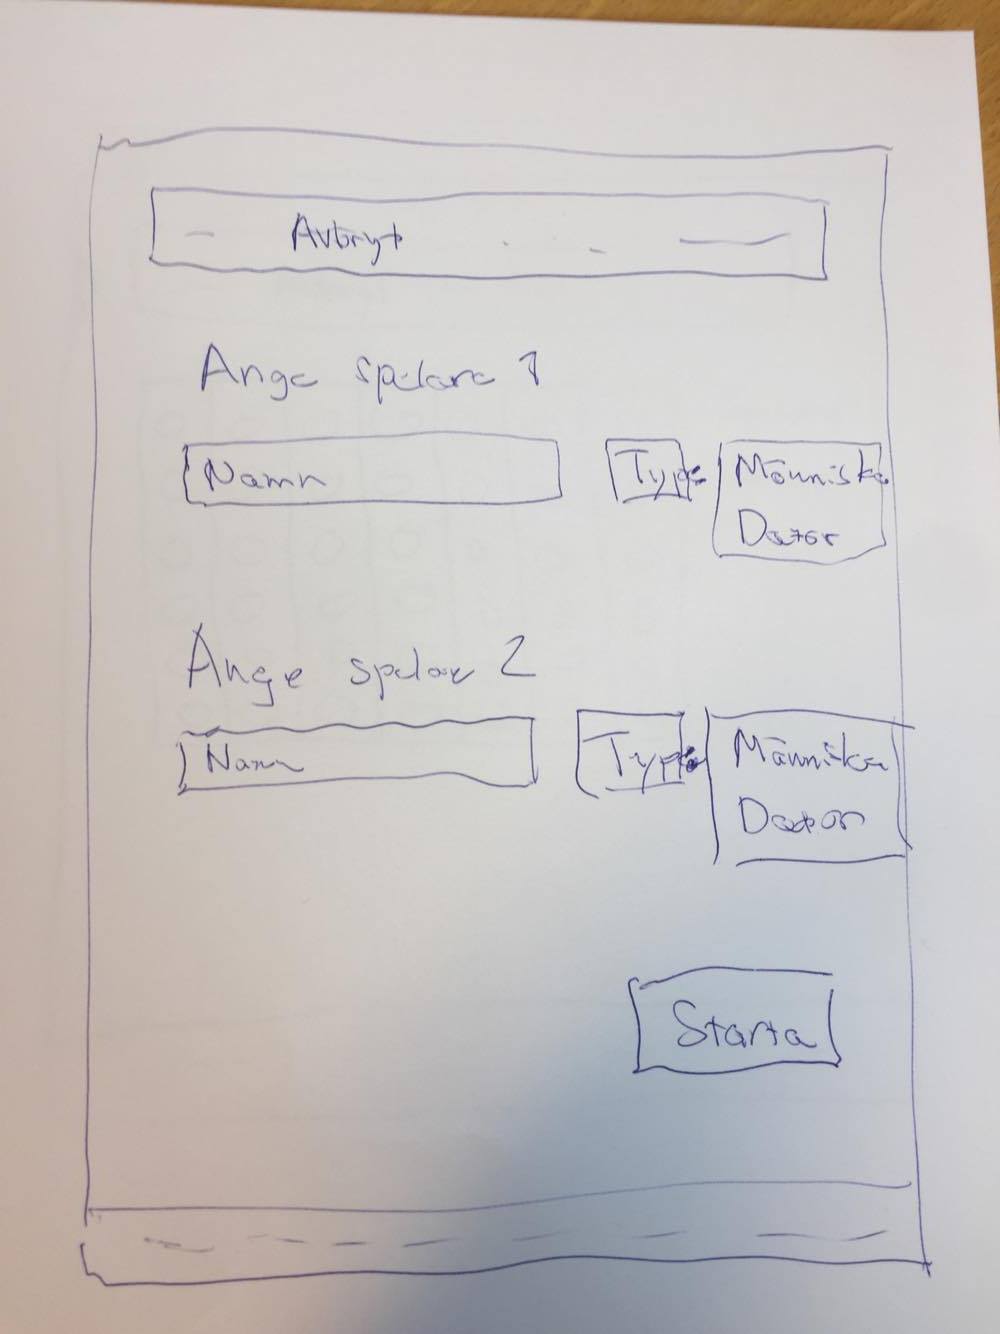 Avbryt
Ange spelare 1
Namn Type Människa
Dator
Ange spelare 2
Namn Type Människa
Dator
Starta